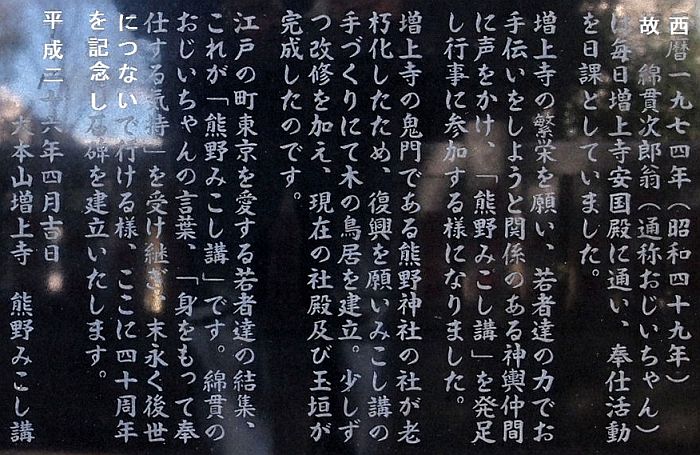 西暦一九七四年（昭和四十九年）
故　綿貫次郎翁（通称おじいちゃん）
は毎日増上寺安国殿に通い、奉仕活動
を日課としていました。
増上寺の繁栄を願い、若者達の力でお
手伝いをしようと関係のある神輿仲間
に声をかけ、「熊野みこし講」を発足
し行事に参加する様になりました。
増上寺の鬼門である熊野神社の社が老
朽化したため、復興を願いみこし講の
手づくりにて木の鳥居を建立。少しず
つ改修を加え、現在の社殿及び玉垣が
完成したのです。
江戸の町東京を愛する若者達の結集、
これが「熊野みこし講」です。綿貫の
おじいちゃんの言葉、「身をもって奉
仕する気持」を受け継ぎ、末永く後世
につないで行ける様、ここに四十周年
を記念し石碑を建立いたします。
平成二十六年四月吉日
大本山増上寺　熊野みこし講